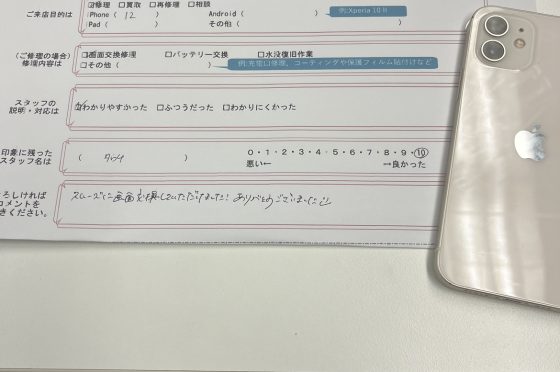 ご来店目的は ☑修理 □買取 □再修理 □相談
iPhone ( 12 ) Android ( ) 例:Xperia 10Ⅱ
iPad ( ) その他 ( )
(ご修理の場合) 修理内容は ☑画面交換修理 □バッテリー交換 □水没復旧作業
□その他 ( ) 例:充電口修理、コーティングや保護フィルム貼付けなど
スタッフの説明・対応は ☑わかりやすかった □ふつうだった □わかりにくかった
印象に残ったスタッフ名は ( ) 0・1・2・3・4・5・6・7・8・9・⑩
悪い← →良かった
ろしければ
コメントを
きください。
スムーズに画面交換していただけました! ありがとうございました